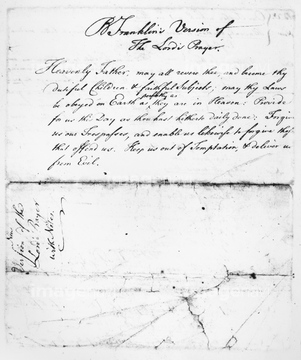 B Franklin's Version of
The Lord's Prayer.
Heavenly Father, may all revere thee, and become thy
dutiful Children & faithful Subjects; may thy Laws
be obeyed on Earth as perfectly as they are in Heaven: Provide
for us this Day as thou hast hitherto daily done: Forgive
us our Trespasses, and enable us likewise to forgive those
that offend us. Keep us out of Temptation, & deliver us
from Evil.
Version of the
Lord's Prayer
with Notes